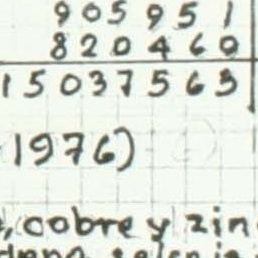 9 0 5 9 5 1
8 2 0 4 6 0
1 5 0 3 7 5 6 3
1976)
cobre y zin